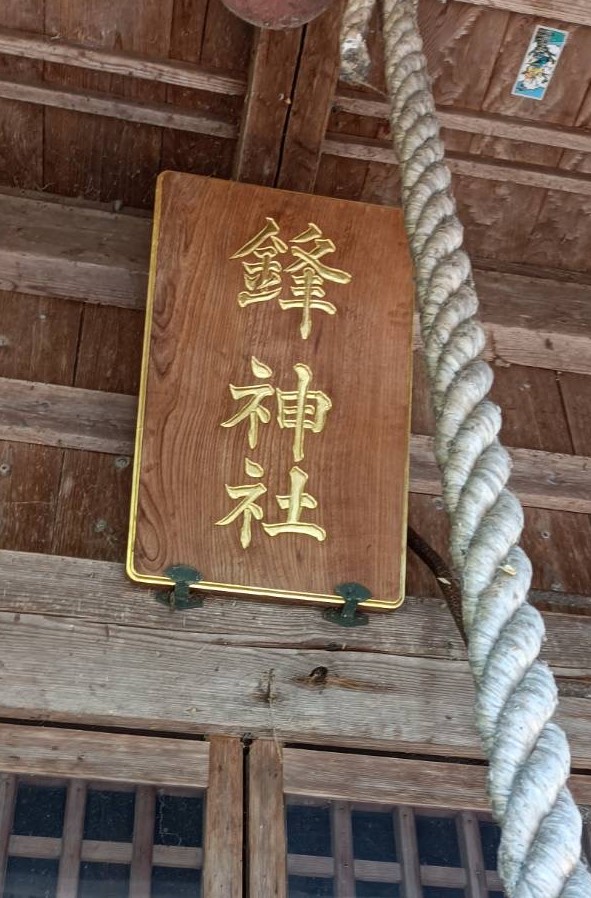 鋒神社